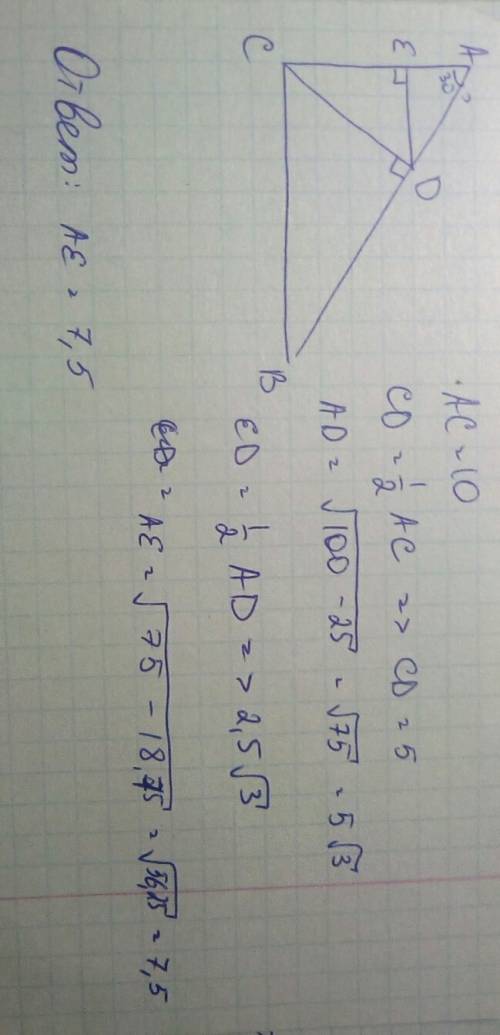 A
30°
E
D
C
B
AC = 10
CD = 1/2 AC => CD = 5
AD = √100 - 25 = √75 = 5√3
ED = 1/2 AD => 2,5√3
= AE = √75 - 18,75 = √56,25 = 7,5
Ответ: AE = 7,5